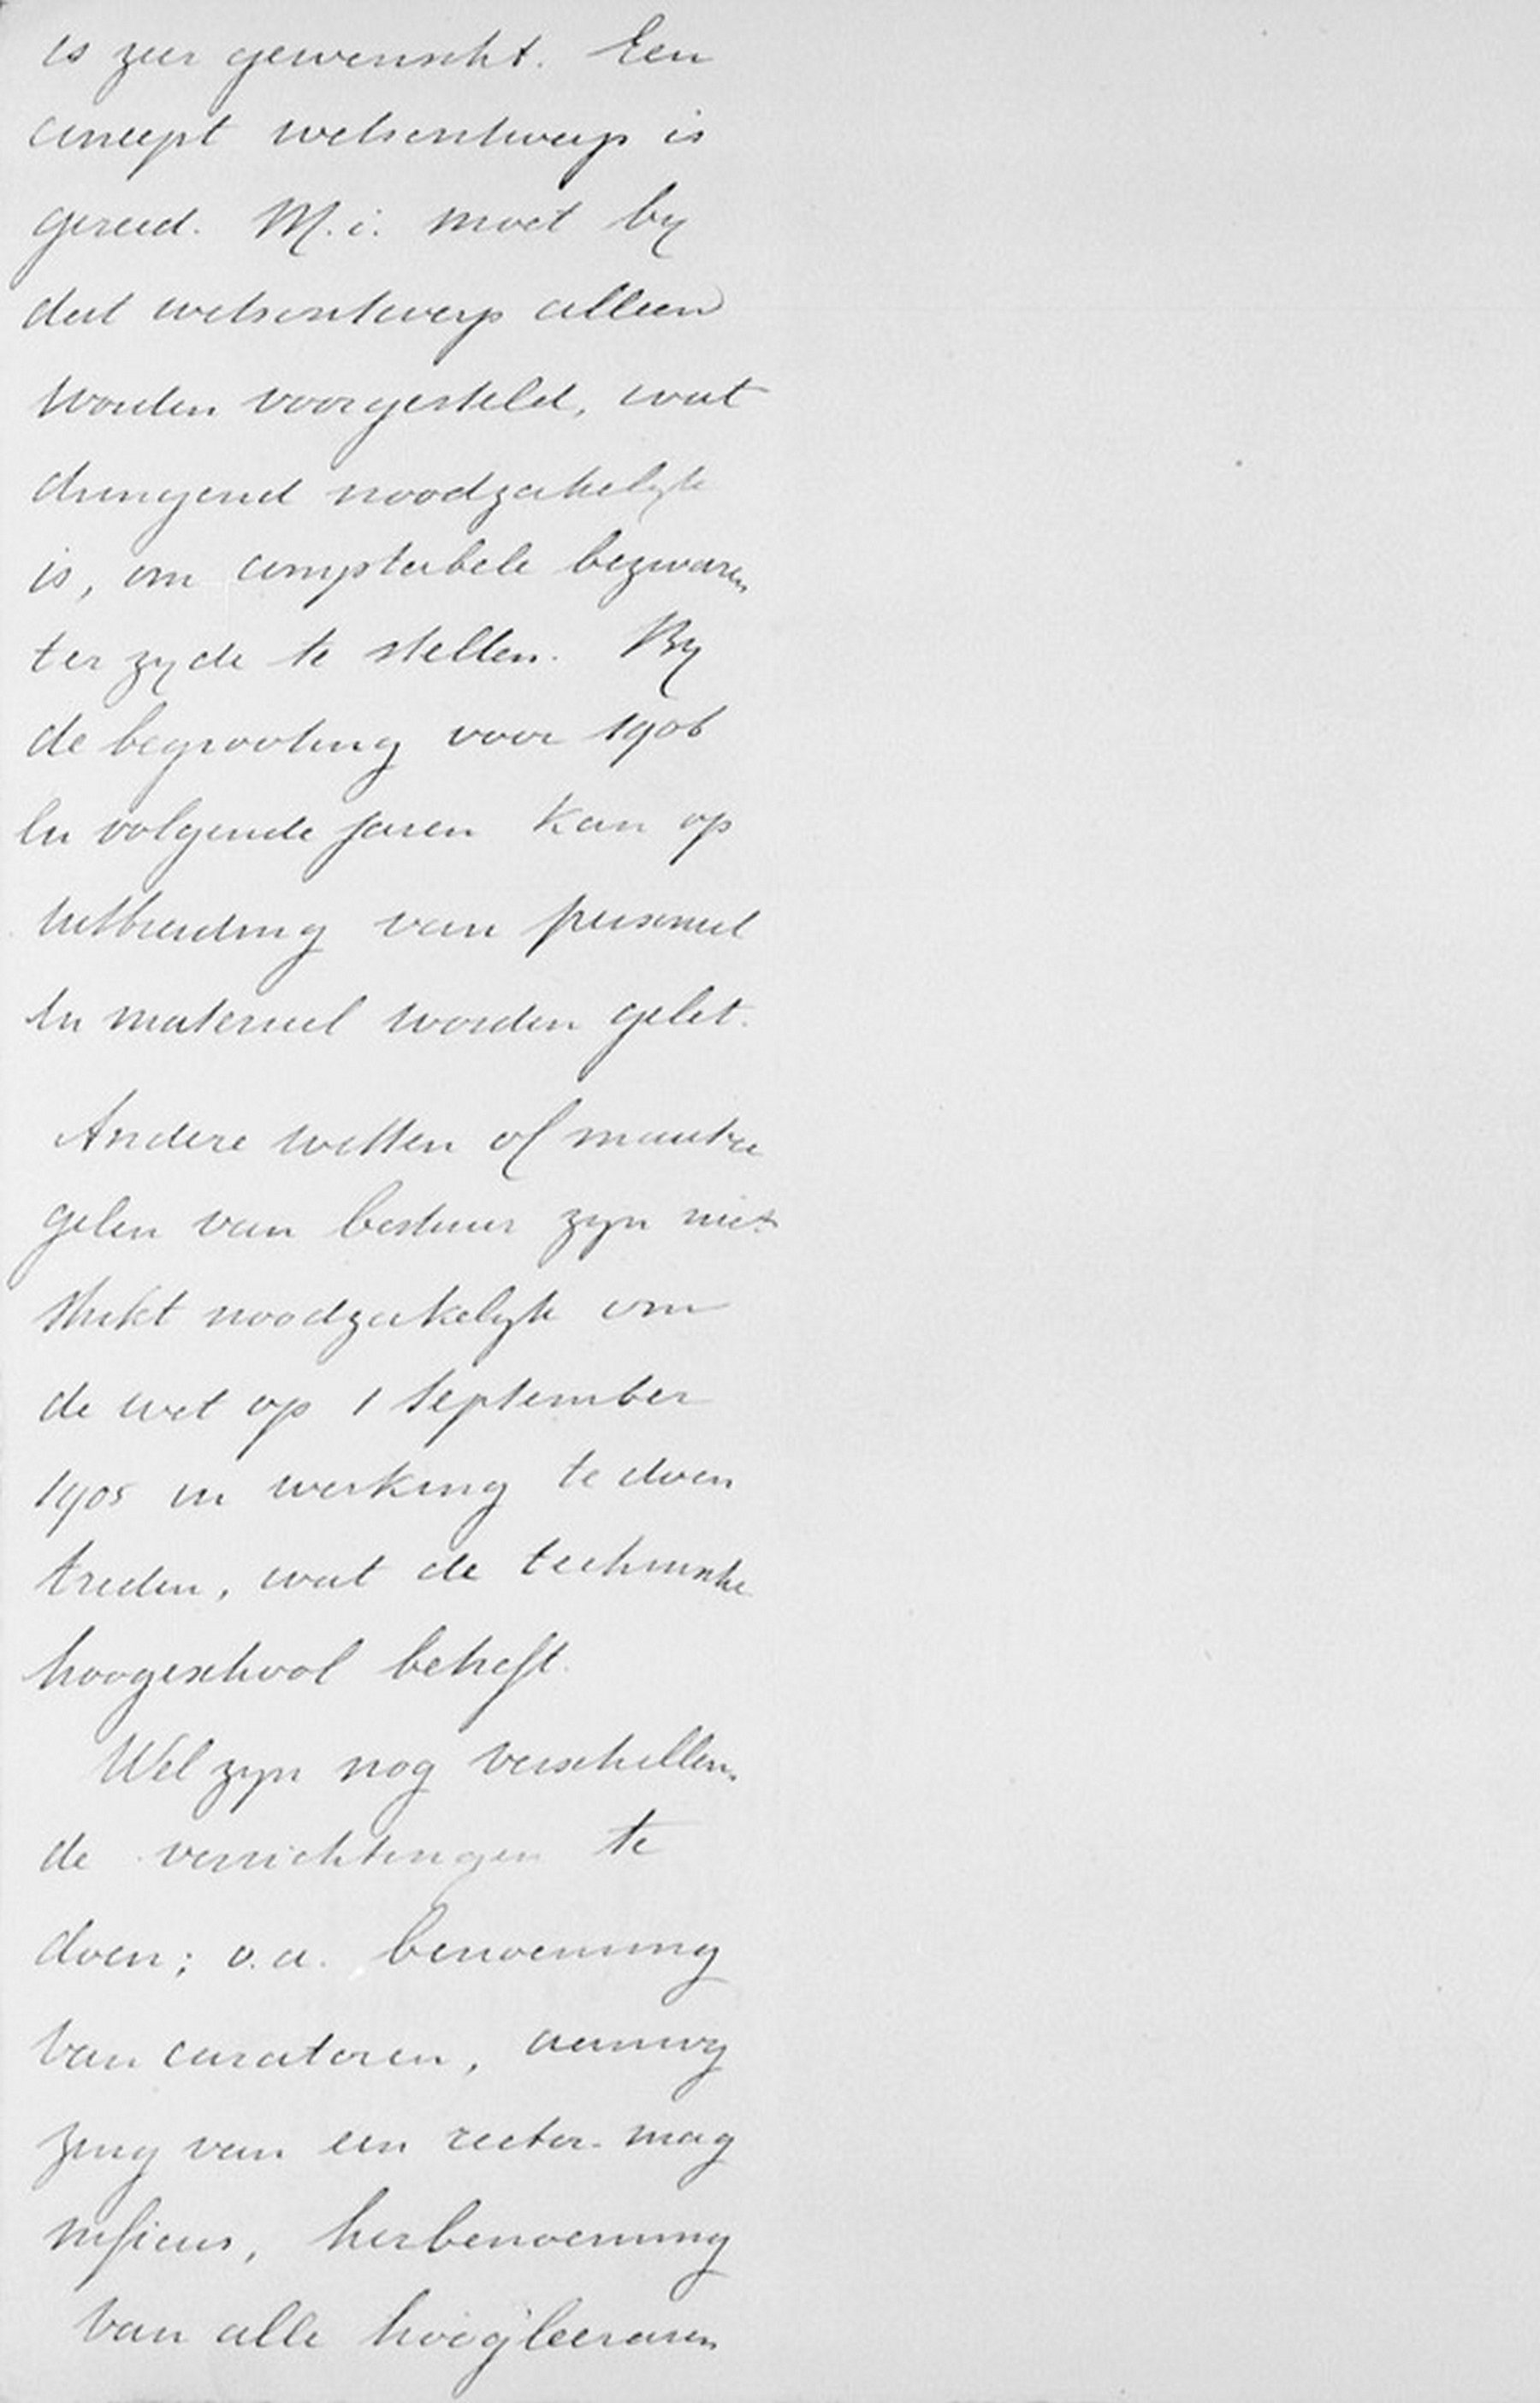 is zeer gewenscht. Een
concept wetsontwerp is
gereed. M.i. moet by
dat wetsontwerp alleen
worden voorgesteld, wat
dringend noodzakelyk
is, om comptabele bezwaren
ter zyde te stellen. By
de begrooting voor 1906
en volgende jaren kan op
uitbreiding van personeel
en materieel worden gelet.
Andere wetten of maatre
gelen van bestuur zyn niet
strikt noodzakelyk om
de wet op 1 September
1905 in werking te doen
treden, wat de technische
hoogeschool betreft.
Wel zyn nog verschillen-
de verrichtingen te
doen; o.a. benoeming
van curatoren, aanwy
zing van een rector-mag
nificus, herbenoeming
van alle hoogleeraren